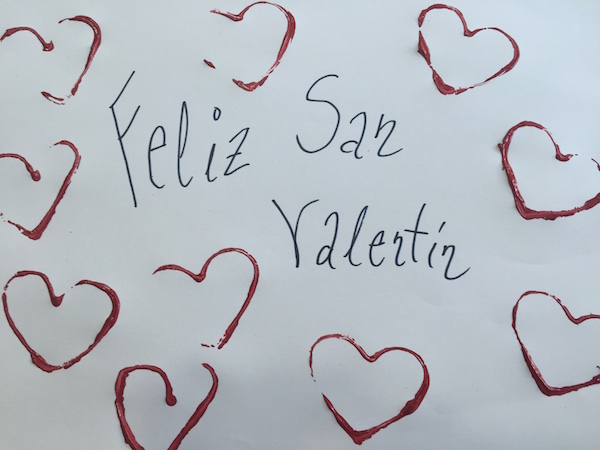 Feliz San
Valentín